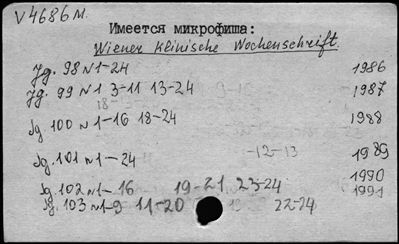 V4686м.
Имеется микрофиша:
Wiener klinische Wochenschrift.
Jg. 98 N1-24 1986
Jg. 99 N1 3-11 13-24 1987
18-13
Jg. 100 N 1-16 18-24 1988
Jg. 101 N1-24 -12-13 1989
Jg. 102 N1- 16 19-21 23-24 1990
Jg. 103 N1-9 11-20 22-24 1991